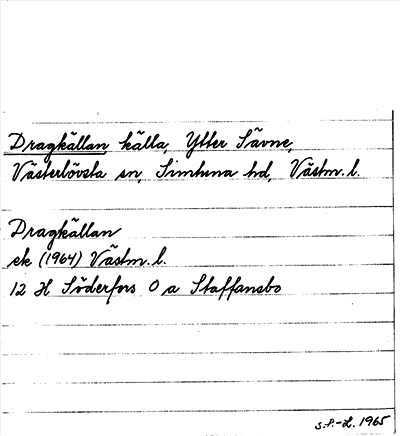 Dragkällan källa, Ytter Sävne,
Västerlövsta sn, Simtuna hd, Västm. l.
Dragkällan
ek (1964) Västm. l.
12 H Söderfors O a Staffansbo
S.P.-L. 1965